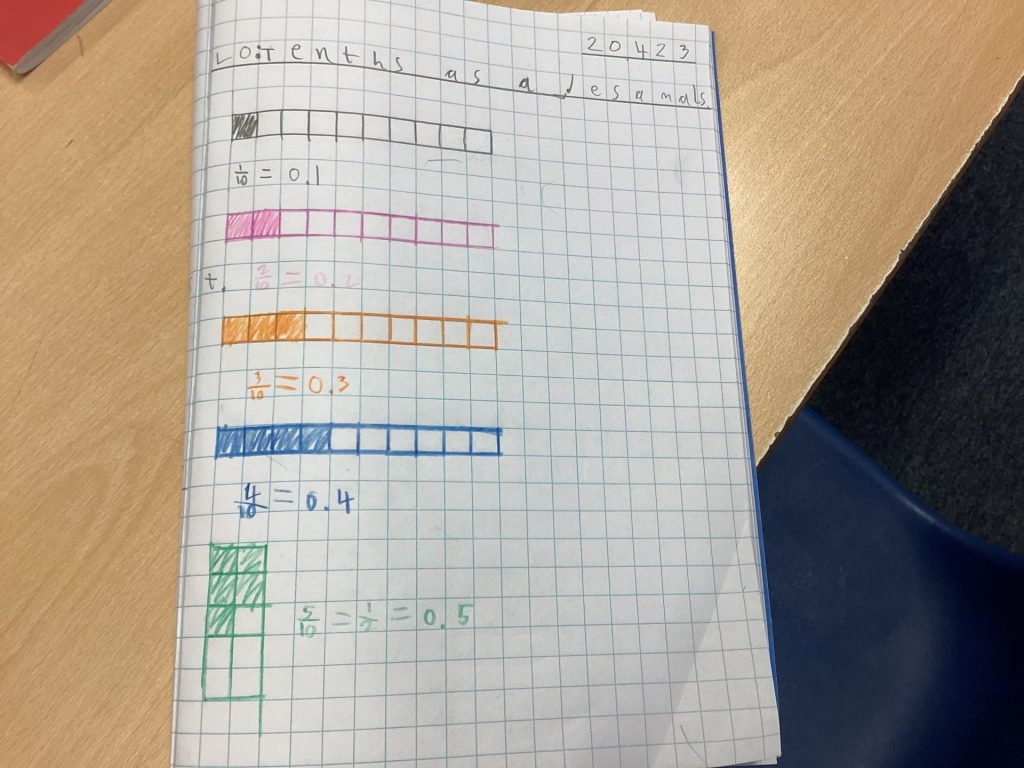 20423
LO:Tenths as a desamals
1/10 = 0.1
t. 2/10 = 0.2
3/10 = 0.3
4/10 = 0.4
5/10 = 1/2 = 0.5